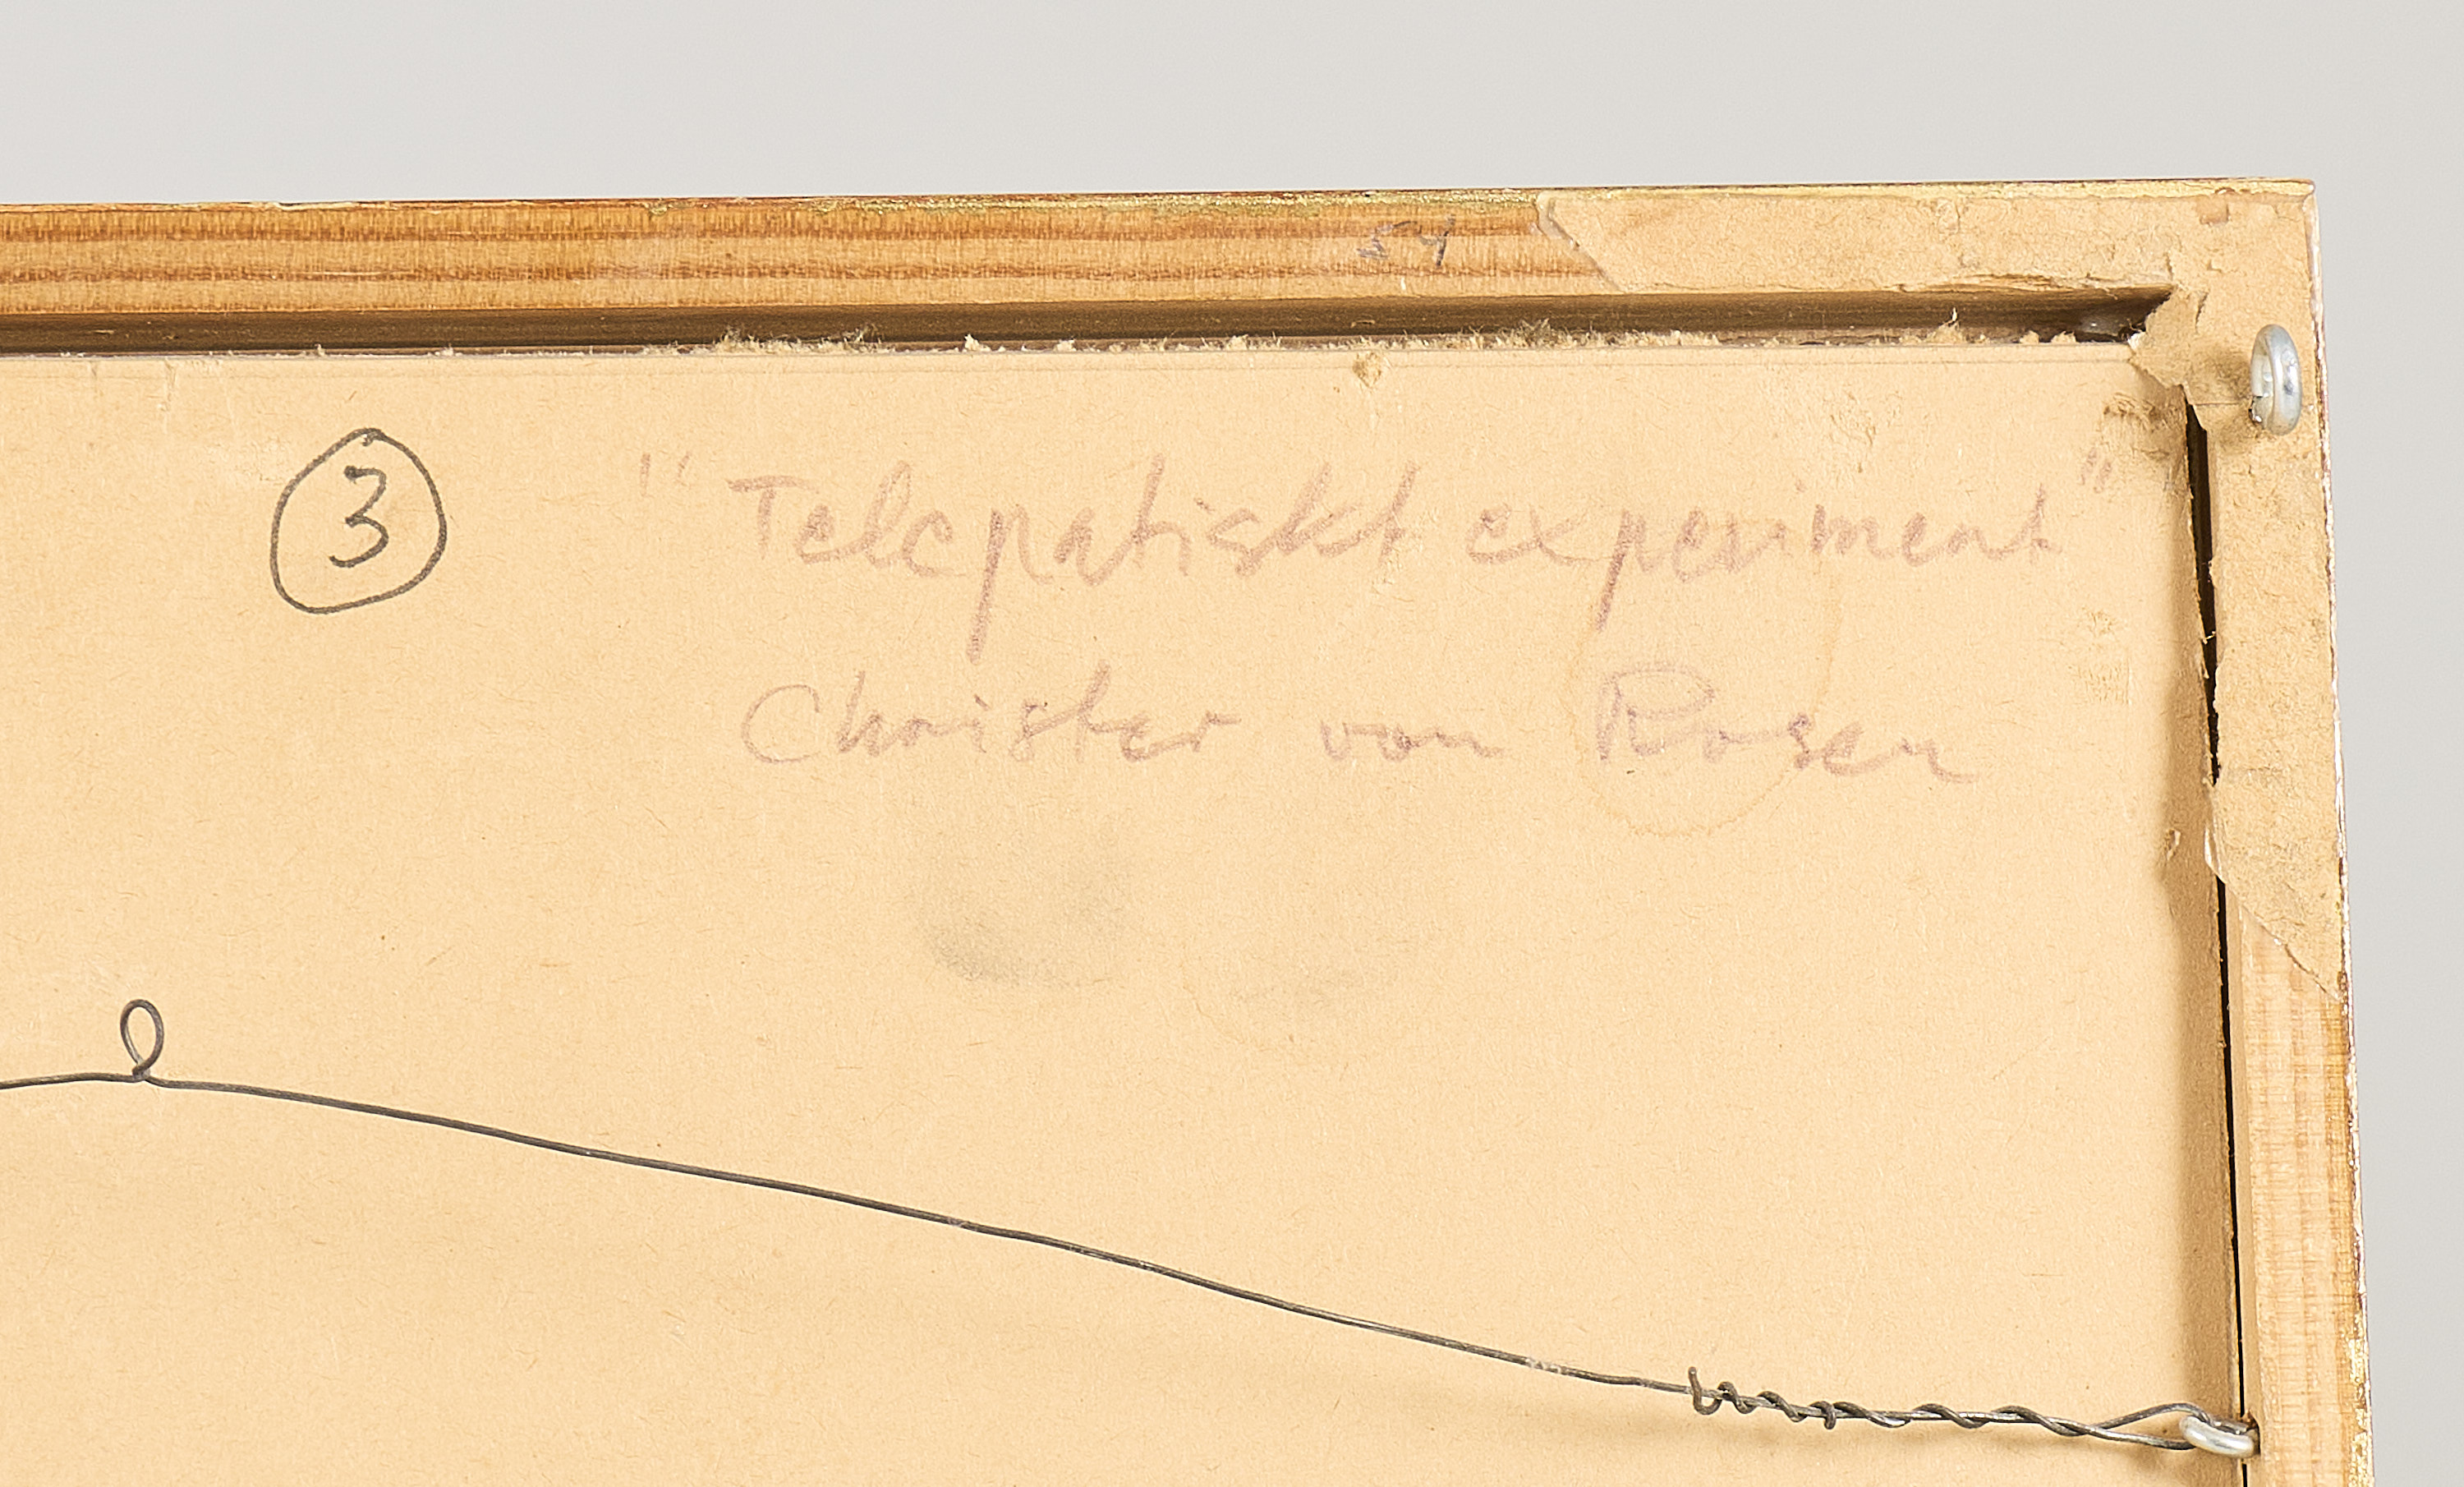 54
3
"Telepatiskt experiment"
Christer von Rosen